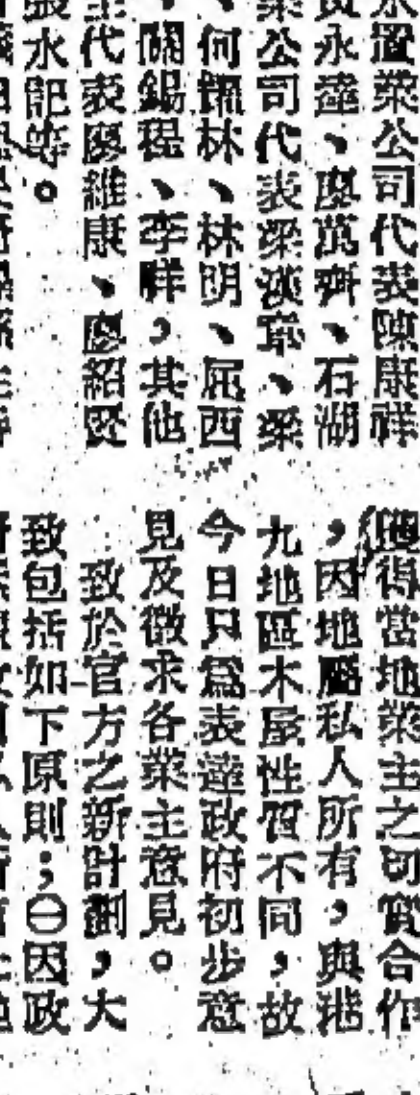 永置業公司代表陳康祥
黃永達、廖萬齊、石湖
業公司代表梁漢章、梁
、何錫林、林明、屈西
、關錫程、李胖,其他
主代表廖維康、廖紹賢
張水記等。
得當地業主之切實合作
,因地屬私人所有,與港
九地區木屋性質不同,故
今日只爲表達政府初步意
見及徵求各業主意見。
致於官方之新計劃,大
致包括如下原則;㊀因政